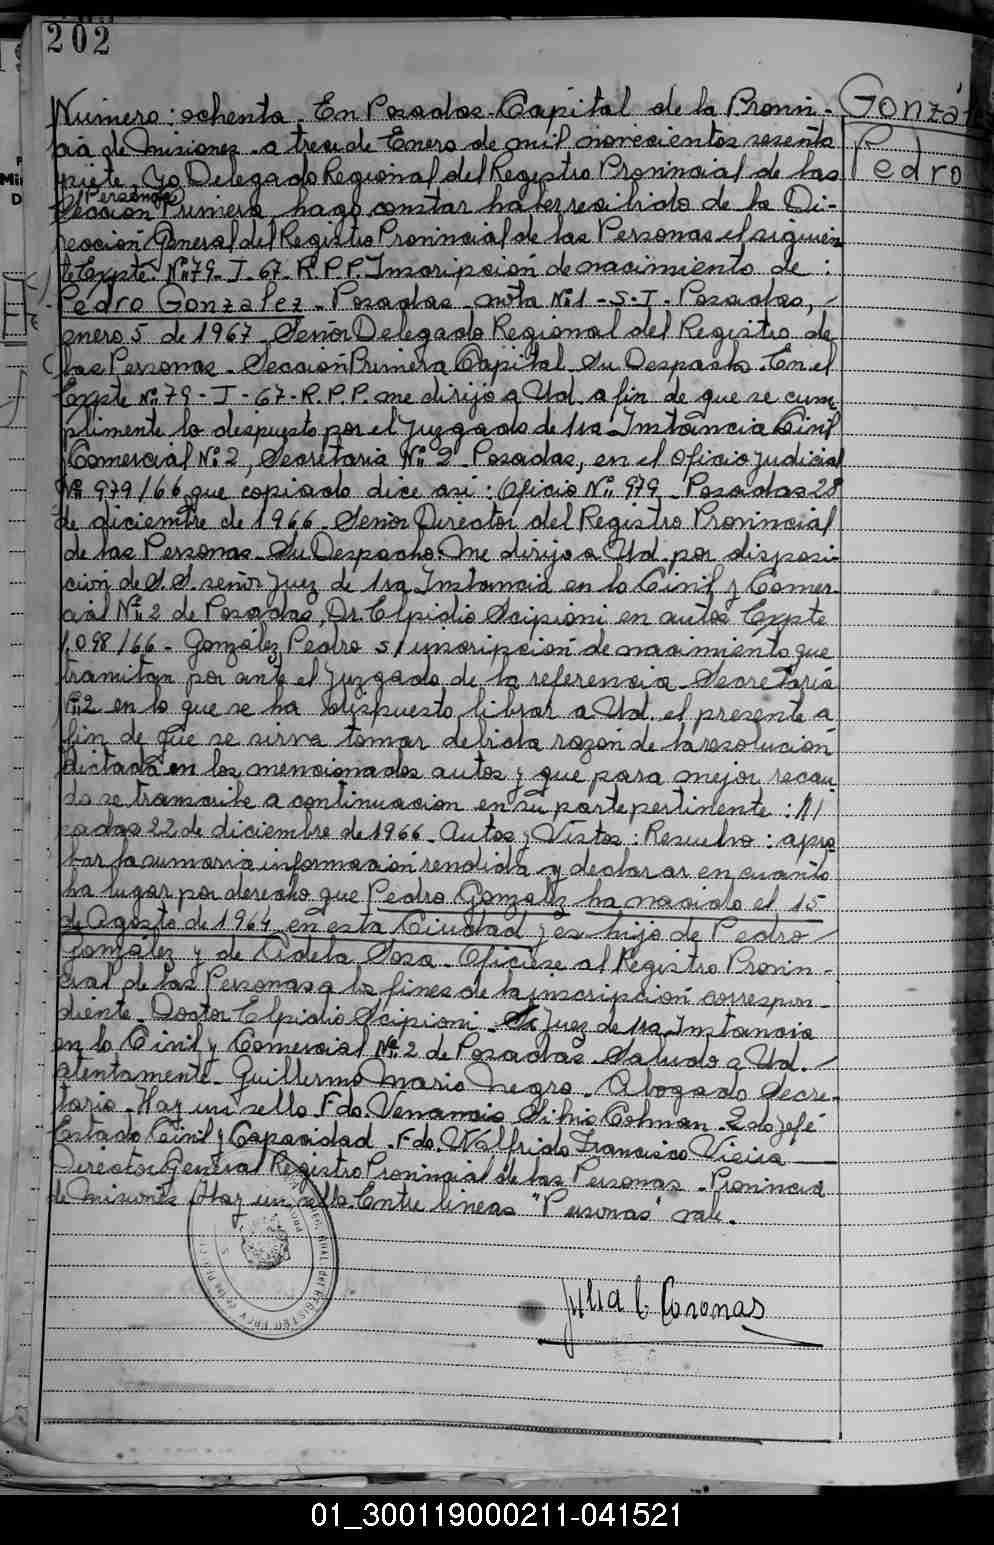 202
González
Pedro
Número: ochenta. En Posadas-Capital de la Provin-
cia de Misiones a trece de Enero de mil novecientos sesenta
y siete. Yo Delegado Regional del Registro Provincial de las
Personas
Sección Primera, hago constar haber recibido de la Di-
rección General del Registro Provincial de las Personas el siguien
te Expte. Nº 79-I-67-R.P.P. Inscripción de nacimiento de:
Pedro Gonzalez. Posadas. nota Nº 1-S-I-Posadas,
enero 5 de 1967. Señor Delegado Regional del Registro de
las Personas. Sección Primera Capital. Su Despacho. En el
Expte Nº 79-I-67-R.P.P. me dirijo a Ud. a fin de que se cum
plimente lo dispuesto por el Juzgado de 1ra Instancia Civil
y Comercial Nº 2, Secretaria Nº 2 Posadas, en el Oficio Judicial
Nº 979/66 que copiado dice asi: Oficio Nº 979. Posadas 28
de diciembre de 1966. Señor Director del Registro Provincial
de las Personas. Su Despacho. Me dirijo a Ud. por disposi-
ción de S.S. señor Juez de 1ra Instancia en lo Civil y Comer
cial Nº 2 de Posadas, Dr. Elpidio Scipioni en autos Expte
1.098/66- González Pedro s/ inscripción de nacimiento que
tramitan por ante el Juzgado de la referencia Secretaría
Nº 2 en lo que se ha dispuesto librar a Ud. el presente a
fin de que se sirva tomar debida razón de la resolución
dictada en los mencionados autos y que para mejor recau
do se transcribe a continuacion en su parte pertinente:
sadas 22 de diciembre de 1966. Autos y Vistos: Resuelvo: apro
bar la sumaria información rendida y declarar en cuanto
ha lugar por derecho que Pedro Gonzalez ha nacido el 15
de Agosto de 1964 en esta Ciudad y es hijo de Pedro
González y de Sosa. Ofíciese al Registro Provin-
cial de las Personas a los fines de la inscripción correspon-
diente. Doctor Elpidio Scipioni. Sr Juez de 1ra Instancia
en lo Civil y Comercial Nº 2 de Posadas. Saludo a Ud.
atentamente. Guillermo Mario Negro. Abogado Secre-
tario. Hay un sello. Fdo. Venancio Silvio Colman. 2do Jefe
Estado Civil y Capacidad. Fdo. Walfrido Francisco Vieira
Director General Registro Provincial de las Personas. Provincia
de Misiones. Hay un sello. Entre lineas "Personas" vale.
Julia C Coronas
01_300119000211-041521